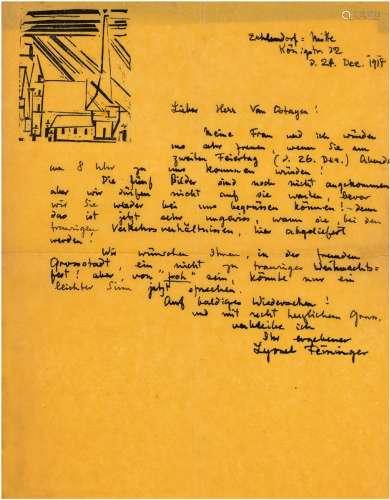 Zehlendorf = Mitte
Königstr 32
d. 24. Dez. 1918
Lieber Herr Van
Meine Frau und ich würden
uns sehr freuen, wenn Sie am
zweiten Feiertag (d. 26. Dez.) Abends
um 8 Uhr zu uns kommen würden!
Die fünf Bilder sind noch nicht angekommen
aber wir dürfen nicht auf sie warten bevor
wir Sie wieder bei uns begrüssen können! - denn
das ist jetzt sehr ungewiss, wann sie, bei den
traurigen Verkehrsverhältnissen, hier abgeliefert
werden!
Wir wünschen Ihnen, in der fremden
Grossstadt, ein nicht zu trauriges Weihnachts-
fest! aber von "froh" sein, könnte nur ein
leichter Sinn jetzt sprechen.
Auf baldiges Wiedersehen!
und mit recht herzlichem Gruss,
verbleibe ich
Ihr ergebener
Lyonel Feininger